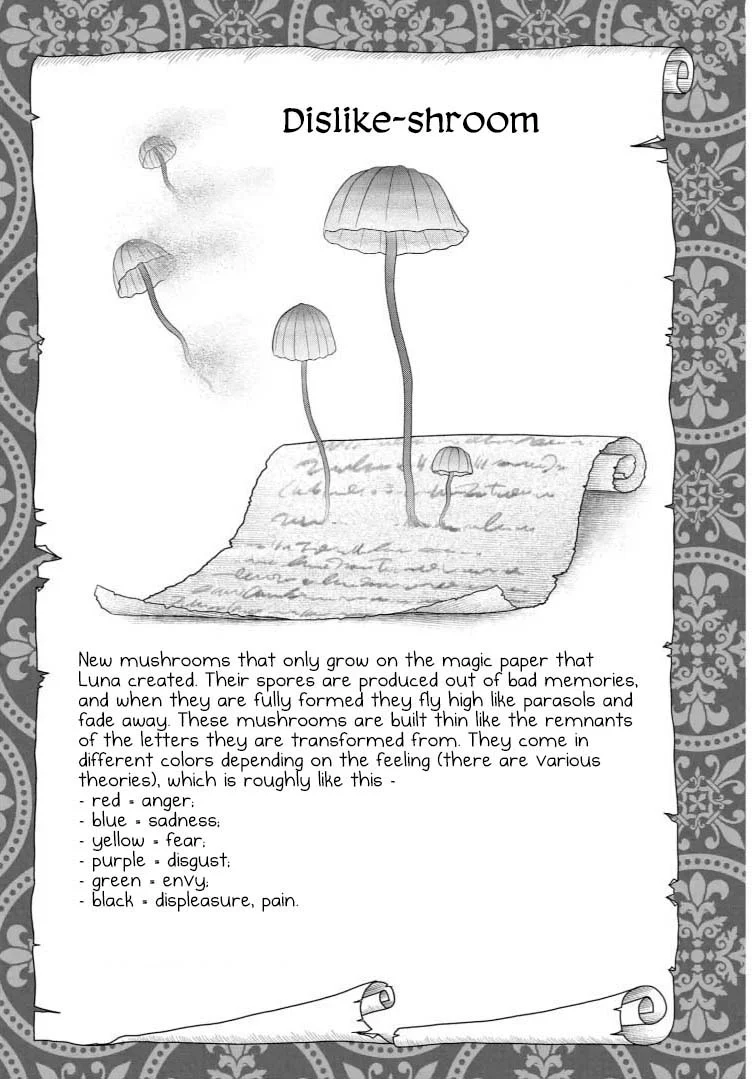 Dislike-shroom
New mushrooms that only grow on the magic paper that
Luna created. Their spores are produced out of bad memories,
and when they are fully formed they fly high like parasols and
fade away. These mushrooms are built thin like the remnants
of the letters they are transformed from. They come in
different colors depending on the feeling (there are various
theories), which is roughly like this -
- red = anger;
- blue = sadness;
- yellow = fear;
- purple = disgust;
- green = envy;
- black = displeasure, pain.